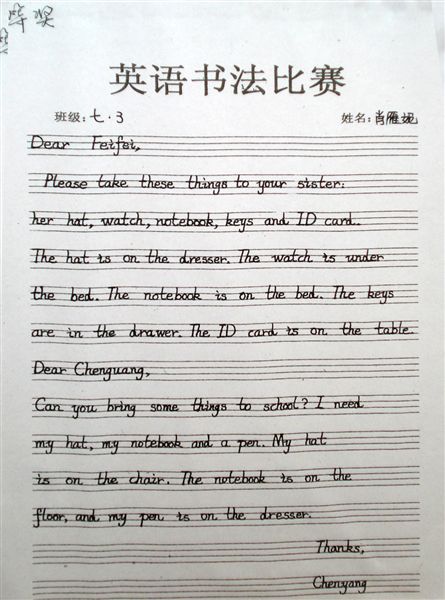 奖
英语书法比赛
班级：七．3 姓名：肖雁
Dear Feifei,
Please take these things to your sister:
her hat, watch, notebook, keys and ID card.
The hat is on the dresser. The watch is under
the bed. The notebook is on the bed. The keys
are in the drawer. The ID card is on the table.
Dear Chenguang,
Can you bring some things to school? I need
my hat, my notebook and a pen. My hat
is on the chair. The notebook is on the
floor, and my pen is on the dresser.
Thanks,
Chenyang